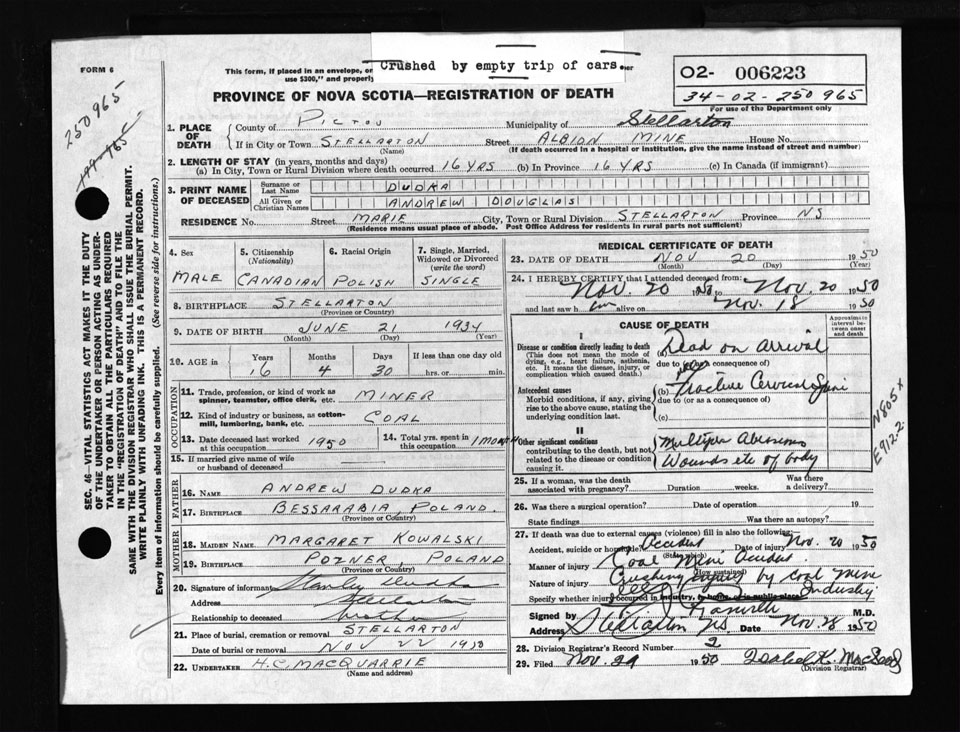 FORM 6
This form, if placed in an envelope, or
use $300," and properly
Crushed by empty trip of cars.
O2- 006223
34-02-250965
For use of the Department only
PROVINCE OF NOVA SCOTIA—REGISTRATION OF DEATH
250965
1. PLACE OF DEATH
County of PICTOU Municipality of Stellarton
If in City or Town STELLARTON Street ALBION MINE House No.
(Name) (If death occurred in a hospital or institution, give the name instead of street and number)
2. LENGTH OF STAY (in years, months and days)
(a) In City, Town or Rural Division where death occurred 16 YRS (b) In Province 16 YRS (c) In Canada (if immigrant)
3. PRINT NAME OF DECEASED
Surname or Last Name DUDKA
All Given or Christian Names ANDREW DOUGLAS
RESIDENCE No. Street MARIE City, Town or Rural Division STELLARTON Province NS
(Residence means usual place of abode. Post Office Address for residents in rural parts not sufficient)
4. Sex MALE
5. Citizenship (Nationality) CANADIAN
6. Racial Origin POLISH
7. Single, Married, Widowed or Divorced (write the word) SINGLE
8. BIRTHPLACE STELLARTON
(Province or Country)
9. DATE OF BIRTH JUNE 21 1934
(Month) (Day) (Year)
10. AGE in Years 16 Months 4 Days 30 If less than one day old hrs. or min.
OCCUPATION
11. Trade, profession, or kind of work as spinner, teamster, office clerk, etc. MINER
12. Kind of industry or business, as cotton-mill, lumbering, bank, etc. COAL
13. Date deceased last worked at this occupation 1950
14. Total yrs. spent in this occupation 1 MONTH
15. If married give name of wife or husband of deceased
FATHER
16. NAME ANDREW DUDKA
17. BIRTHPLACE BESSARABIA, POLAND.
(Province or Country)
MOTHER
18. MAIDEN NAME MARGARET KOWALSKI
19. BIRTHPLACE POZNER, POLAND
(Province or Country)
20. Signature of informant Stanley Dudka
Address Stellarton
Relationship to deceased brother
21. Place of burial, cremation or removal STELLARTON
Date of burial or removal NOV 22 1950
22. UNDERTAKER H.C. MACQUARRIE
(Name and address)
MEDICAL CERTIFICATE OF DEATH
23. DATE OF DEATH NOV 20 1950
(Month) (Day) (Year)
24. I HEREBY CERTIFY that I attended deceased from:
Nov. 20 1950 to Nov. 20 1950
and last saw him alive on Nov. 18 1950
CAUSE OF DEATH
Approximate interval between onset and death
I
Disease or condition directly leading to death
(This does not mean the mode of dying, e.g., heart failure, asthenia, etc. It means the disease, injury, or complication which caused death.)
(a) Dead on arrival
due to (or as a consequence of)
Antecedent causes
Morbid conditions, if any, giving rise to the above cause, stating the underlying condition last.
(b) Fracture Cervical Spine
due to (or as a consequence of)
(c)
II
Other significant conditions
contributing to the death, but not related to the disease or condition causing it.
Multiple Abrasions
Wounds etc of body
N805 x
E912.2
25. If a woman, was the death associated with pregnancy? Duration weeks. Was there a delivery?
26. Was there a surgical operation? Date of operation 19
State findings Was there an autopsy?
27. If death was due to external causes (violence) fill in also the following:
Accident, suicide or homicide? Accident Date of injury Nov. 20 1950
(State which)
Manner of injury Coal Mine Accident
(How sustained)
Nature of injury Crushing injury by coal mine
Specify whether injury occurred in industry, in home, or in public place Industry
Signed by M.D.
Address Stellarton NS. Date Nov. 28 1950
28. Division Registrar's Record Number 2
29. Filed Nov. 29 1950 Isabel K. MacLeod
(Division Registrar)
SEC. 46—VITAL STATISTICS ACT MAKES IT THE DUTY
OF THE UNDERTAKER OR PERSON ACTING AS UNDER-
TAKER TO OBTAIN ALL THE PARTICULARS REQUIRED
IN THE "REGISTRATION OF DEATH" AND TO FILE THE
SAME WITH THE DIVISION REGISTRAR WHO SHALL ISSUE THE BURIAL PERMIT.
WRITE PLAINLY WITH UNFADING INK. THIS IS A PERMANENT RECORD.
Every item of information should be carefully supplied. (See reverse side for instructions.)